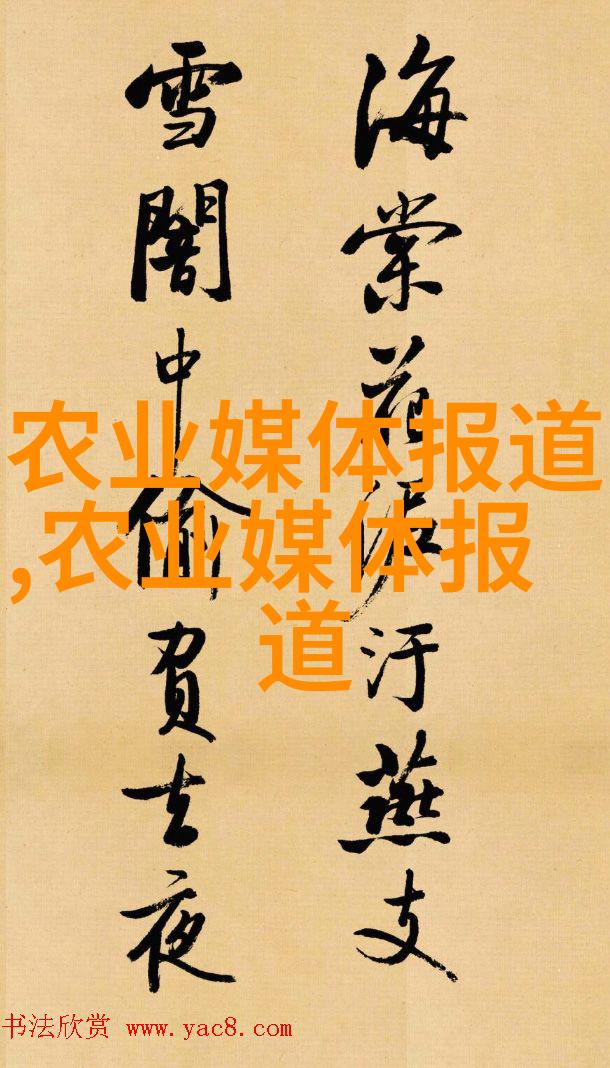 海棠花泥汙燕支
雪闇中偷負去夜
农业媒体报道
,农业媒体报
道
书法欣赏 www.yac8.com